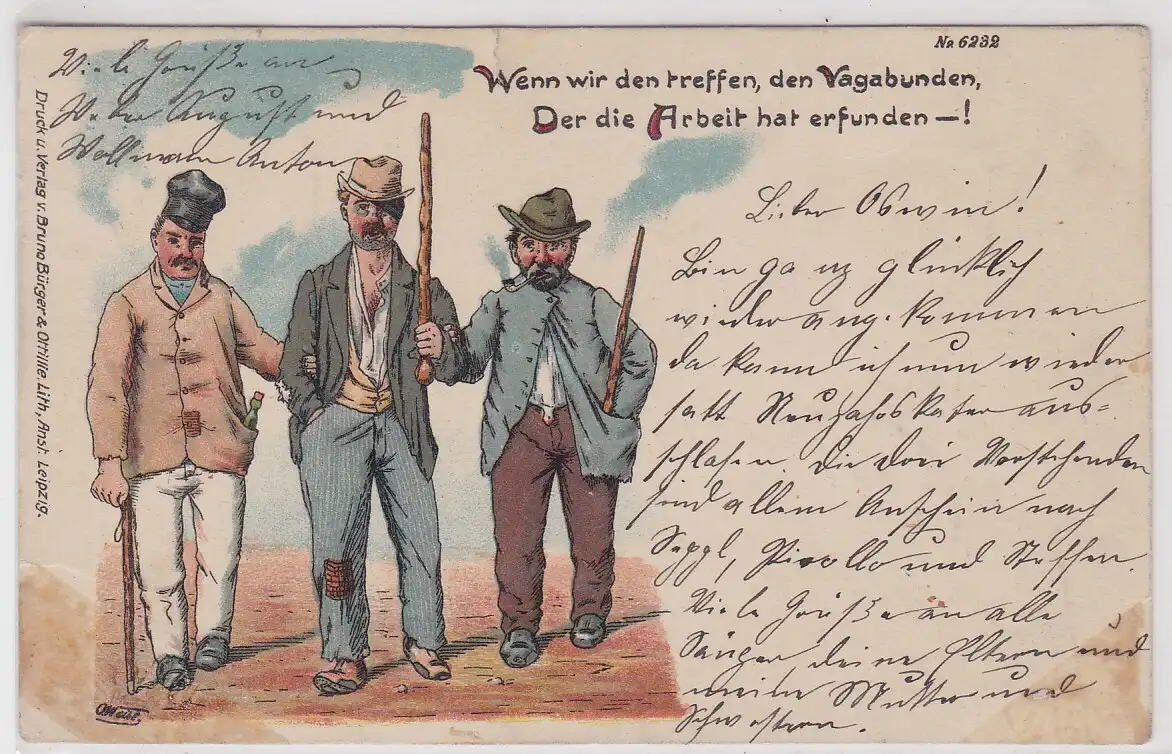 No 6232
Wenn wir den treffen, den Vagabunden,
Der die Arbeit hat erfunden —!
Viele Grüße an
Weber August und
Wollmann Anton
Lieber Oswin!
Bin ganz glücklich
wieder angekommen
da kann ich nun wieder
satt Neujahrskater aus-
schlafen. Die drei Vorstehenden
sind allem Anschein nach
Seppl, Picollo und Steffen.
Viele Grüße an alle
Sänger, deine Eltern und
meine Mutter und
Schwestern.
Druck u. Verlag v. Bruno Bürger & Ottilie Lith. Anst. Leipzig.